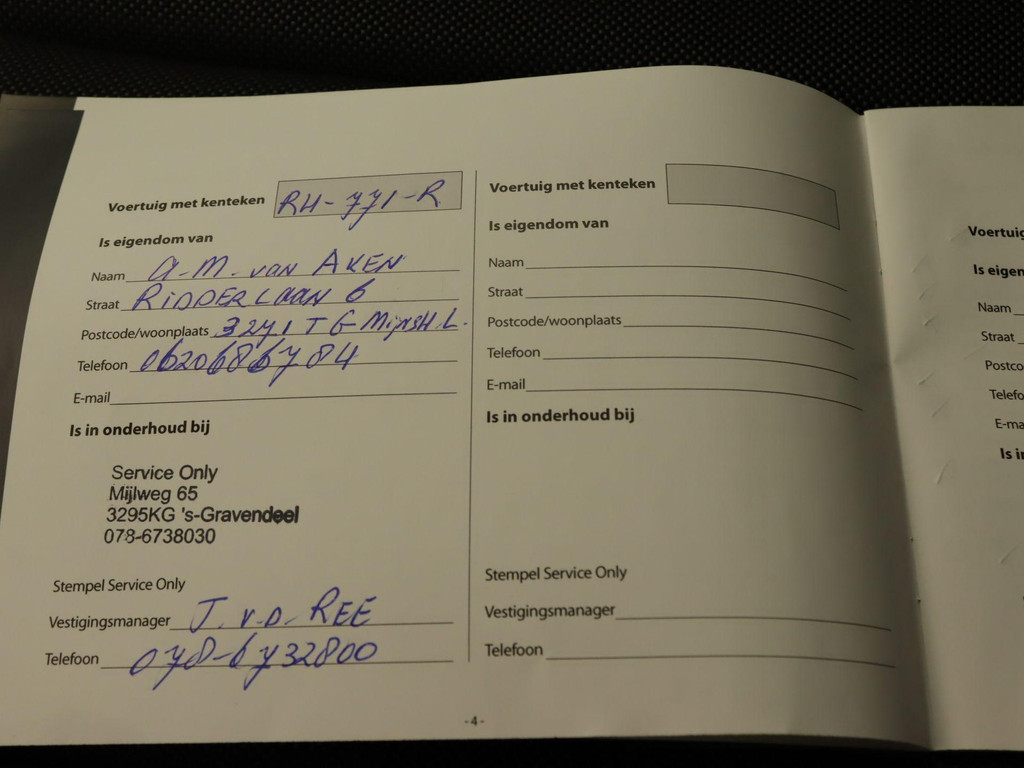 Voertuig met kenteken RH-771-R
Is eigendom van
Naam A.M. van AKEN
Straat RIDDERLAAN 6
Postcode/woonplaats 3271 TG MijnsH.L.
Telefoon 0620686784
E-mail
Is in onderhoud bij
Service Only
Mijlweg 65
3295KG 's-Gravendeel
078-6738030
Stempel Service Only
Vestigingsmanager J. v.d. REE
Telefoon 078-6732800
Voertuig met kenteken
Is eigendom van
Naam
Straat
Postcode/woonplaats
Telefoon
E-mail
Is in onderhoud bij
Stempel Service Only
Vestigingsmanager
Telefoon
- 4 -
Voertuig
Is eigen
Naam
Straat
Postco
Telefo
E-ma
Is i